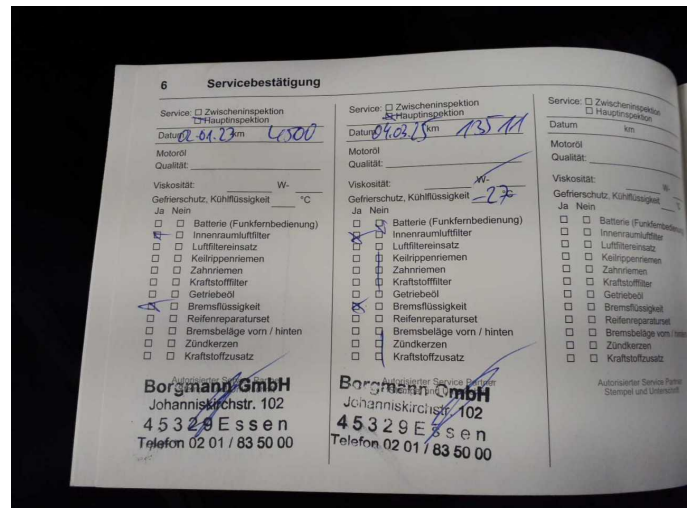 6 Servicebestätigung
Service: Zwischeninspektion
Hauptinspektion
Datum 02.01.23 km 4500
Motoröl
Qualität:
Viskosität: W-
Gefrierschutz, Kühlflüssigkeit °C
Ja Nein
Batterie (Funkfernbedienung)
Innenraumluftfilter
Luftfiltereinsatz
Keilrippenriemen
Zahnriemen
Kraftstofffilter
Getriebeöl
Bremsflüssigkeit
Reifenreparaturset
Bremsbeläge vorn / hinten
Zündkerzen
Kraftstoffzusatz
Autorisierter Service Partner
Borgmann GmbH
Johanniskirchstr. 102
45329 Essen
Telefon 02 01 / 83 50 00
Service: Zwischeninspektion
Hauptinspektion
Datum 04.03.25 km 13511
Motoröl
Qualität:
Viskosität: W-
Gefrierschutz, Kühlflüssigkeit -27 °C
Ja Nein
Batterie (Funkfernbedienung)
Innenraumluftfilter
Luftfiltereinsatz
Keilrippenriemen
Zahnriemen
Kraftstofffilter
Getriebeöl
Bremsflüssigkeit
Reifenreparaturset
Bremsbeläge vorn / hinten
Zündkerzen
Kraftstoffzusatz
Autorisierter Service Partner
Stempel und
Borgmann GmbH
Johanniskirchstr. 102
45329 Essen
Telefon 02 01 / 83 50 00
Service: Zwischeninspektion
Hauptinspektion
Datum km
Motoröl
Qualität:
Viskosität: W-
Gefrierschutz, Kühlflüssigkeit
Ja Nein
Batterie (Funkfernbedienung)
Innenraumluftfilter
Luftfiltereinsatz
Keilrippenriemen
Zahnriemen
Kraftstofffilter
Getriebeöl
Bremsflüssigkeit
Reifenreparaturset
Bremsbeläge vorn / hinten
Zündkerzen
Kraftstoffzusatz
Autorisierter Service Partner
Stempel und Unterschrift